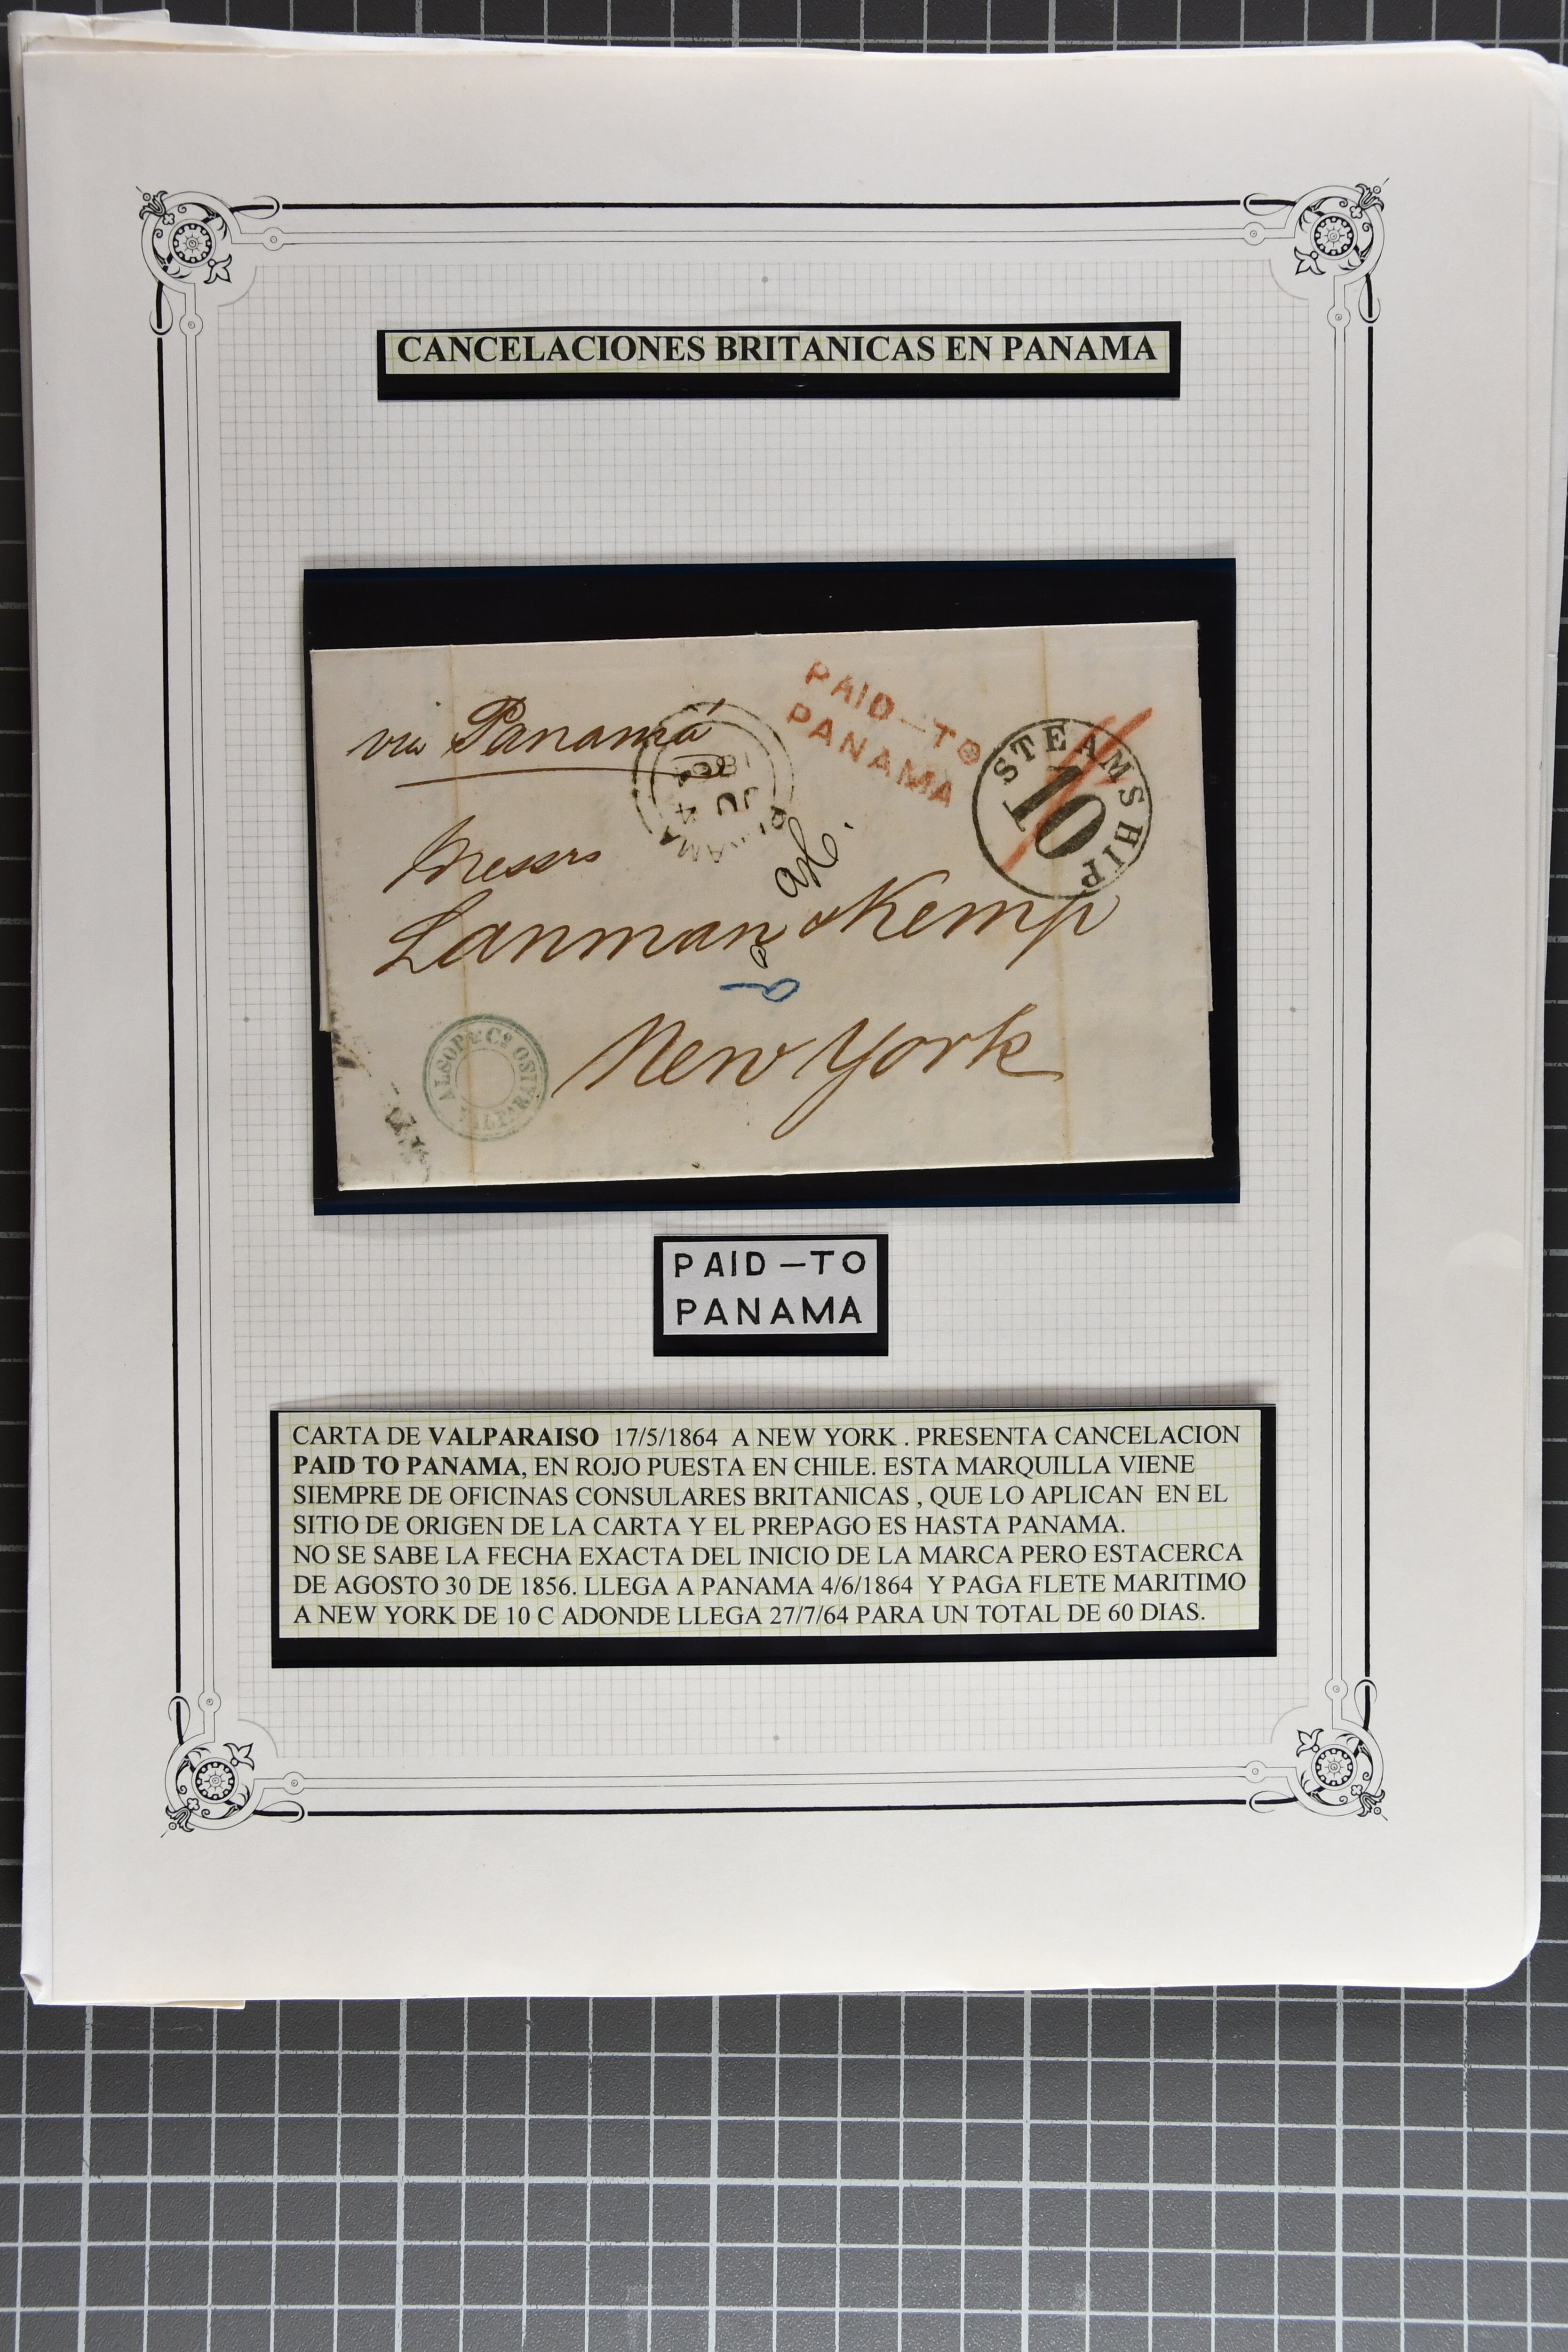 CANCELACIONES BRITANICAS EN PANAMA
PAID-TO
PANAMA
via Panamá
STEAMSHIP
10
1864
JU 4
PANAMA
Messrs
Lanman & Kemp
New York
ALSOP & Co
VALPARAISO
PAID-TO
PANAMA
CARTA DE VALPARAISO 17/5/1864 A NEW YORK . PRESENTA CANCELACION
PAID TO PANAMA, EN ROJO PUESTA EN CHILE. ESTA MARQUILLA VIENE
SIEMPRE DE OFICINAS CONSULARES BRITANICAS , QUE LO APLICAN EN EL
SITIO DE ORIGEN DE LA CARTA Y EL PREPAGO ES HASTA PANAMA.
NO SE SABE LA FECHA EXACTA DEL INICIO DE LA MARCA PERO ESTACERCA
DE AGOSTO 30 DE 1856. LLEGA A PANAMA 4/6/1864 Y PAGA FLETE MARITIMO
A NEW YORK DE 10 C ADONDE LLEGA 27/7/64 PARA UN TOTAL DE 60 DIAS.